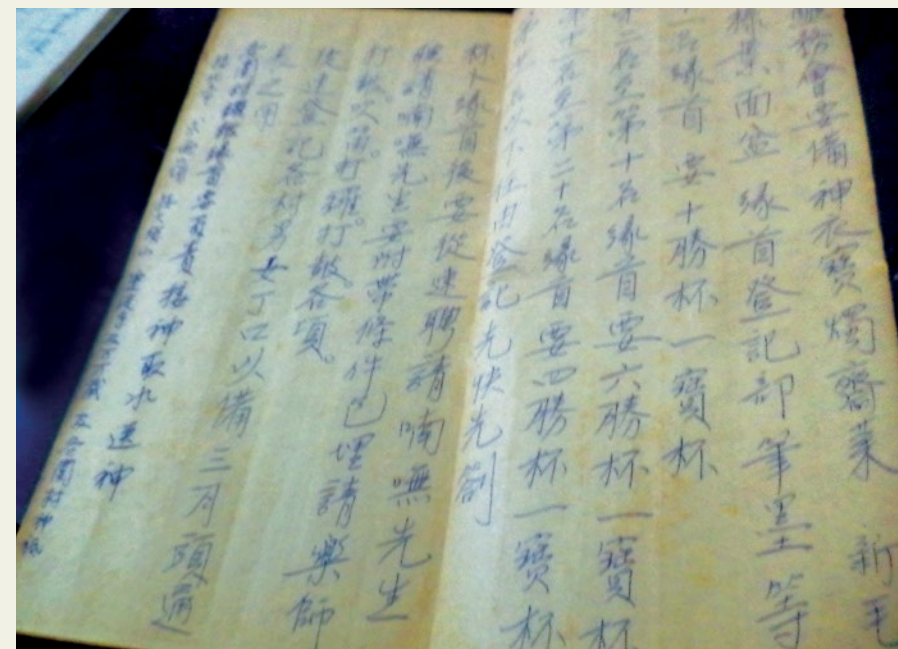 務會要備神衣寶燭齋菜 新毛
檯業面盆 緣首登記部筆墨等
一名緣首 要十勝杯一寶杯
第二名至第十名緣首要六勝杯一寶杯
第十一名至第二十名緣首要四勝杯一寶杯
以下任由登記先快先劄
杯卜緣首後要從速聘請喃嘸先生
聘請喃嘸先生要附帶條件已埋請樂師
打鈸吹笛打鑼打鼓各項
從速登記各村男女丁口以備三月頭通
表之用
各村緣首要負責接神取水送神